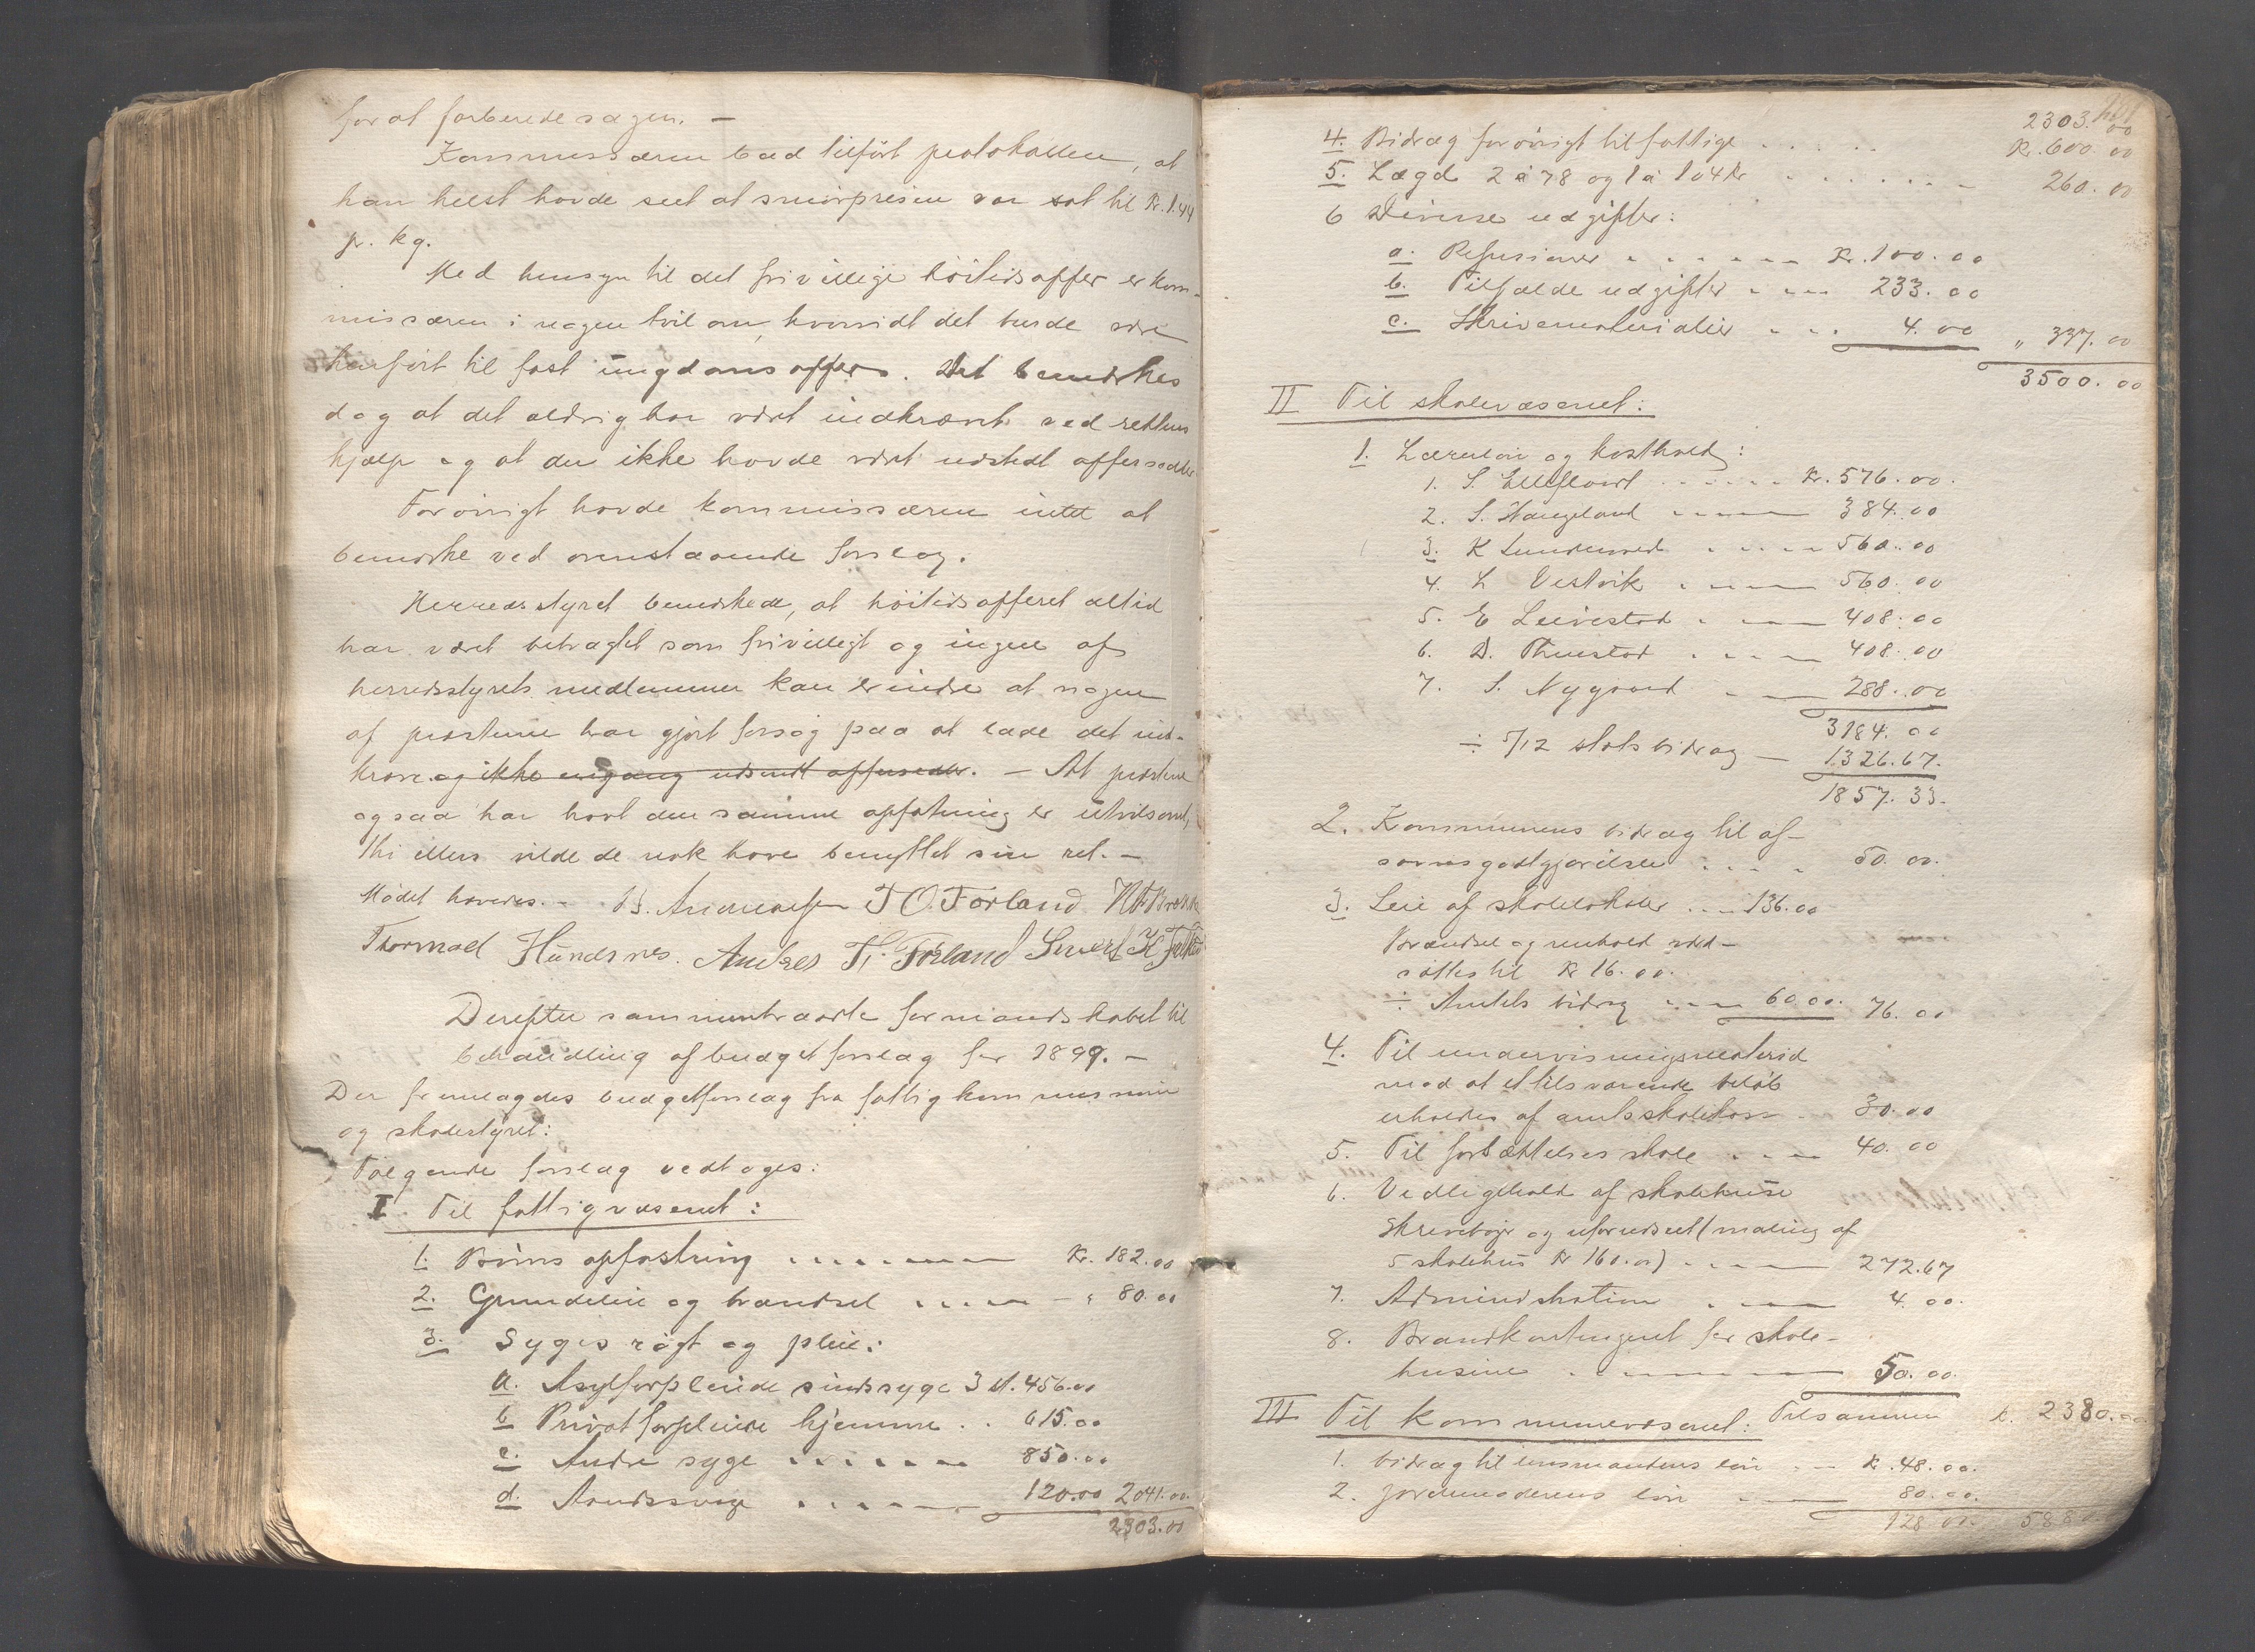 for at forberede sagen. —
Kommissæren bad tilført protokollen, at
han helst havde seet at smørprisen var sat til Kr. 1.44
pr. kg.
Med hensyn til det frivillige høitidsoffer er kom-
missæren i nogen tvil om, hvorvidt det burde være
henført til fast ungdomsoffer. Det bemærkes
dog at det aldrig har været indkrævet ved rettens
hjælp og at der ikke havde været udstedt offersedler
Forøvrigt havde kommissæren intet at
bemærke ved ovenstaaende forslag.
Herredsstyret bemærkede, at høitidsofferet altid
har været betragtet som frivilligt og ingen af
herredsstyrets medlemmer kan erindre at nogen
af prestene har gjort forsøg paa at lade det ind-
kræve og ikke engang udsendt offersedler. — At prestene
ogsaa har havt den samme opfatning er utvilsomt,
thi ellers vilde de nok have benyttet sin ret. —
Mødet hævedes. — T O. Førland
Thormod Hundsnes. Andreas T. Førland Sivert K
Derefter sammentraadte formandskabet til
behandling af budgetforslag for 1899. —
Der fremlagdes budgetforslag fra fattigkommissionen
og skolestyret:
Følgende forslag vedtoges:
I Til fattigvæsenet:
1. Børns opfostring . . . . . . . Kr. 182.00
2. Grundleie og brændsel . . . . . — " 80.00
3. Syges røgt og pleie:
a. Asylforpleiede sindssyge 3 st. 456.00
b Privatforpleiede hjemme . . 615.00
c. Andre syge . . . . . . 850.00
d. Aandssvage . . . . . 120.00 2041.00
2303.00
2303.00
4. Bidrag forøvrigt til fattige . . . . . Kr. 600.00
5. Lægd 2 à 78 og 1 à 104 Kr . . . . . . . 260.00
6 Diverse udgifter:
a. Refusioner . . . . . . Kr. 100.00
b. Tilfælde udgifter . . . . 233.00
c. Skrivematerialier . . . 4.00 " 337.00
3500.00
II Til skolevæsenet:
1. Lærerløn og kosthold:
1. S. Ellefland . . . . . . Kr. 576.00.
2. S. Haugeland . . . . . 384.00
3. K Lunderved . . . . . 560.00
4. L Vestvik . . . . . 560.00
5. E Leivestad . . . . 408.00
6. D. Thuestad . . . . 408.00
7. S. Nygaard . . . 288.00
3184.00
÷ 5/12 statsbidrag — 1326.67.
1857.33.
2. Kommunens bidrag til af-
savnsgodtgjørelse . . . . 50.00.
3. Leie af skolelokaler . . . 136.00
Brændsel og renhold ved-
sættes til Kr 16.00.
÷ Amtets bidrag . . . . 60.00. 76.00
4. Til undervisningsmateriel
mod at et tilsvarende beløb
erholdes af amtsskolekassen . . 30.00
5. Til fortsættelses skole . . . . 40.00
6. Vedligehold af skolehuse
skrivebøger og uforudseet (maling af
5 skolehus Kr 160.00) . . . . 272.67
7. Administration . . . . 4.00.
8. Brandkontingent for skole-
husene . . . . . . 50.00.
Tilsammen k. 2380.00
III Til kommunevæsenet:
1. bidrag til lensmandens løn . . — Kr. 48.00.
2. jordmoderens løn — — 80.00.
128.00. 5880